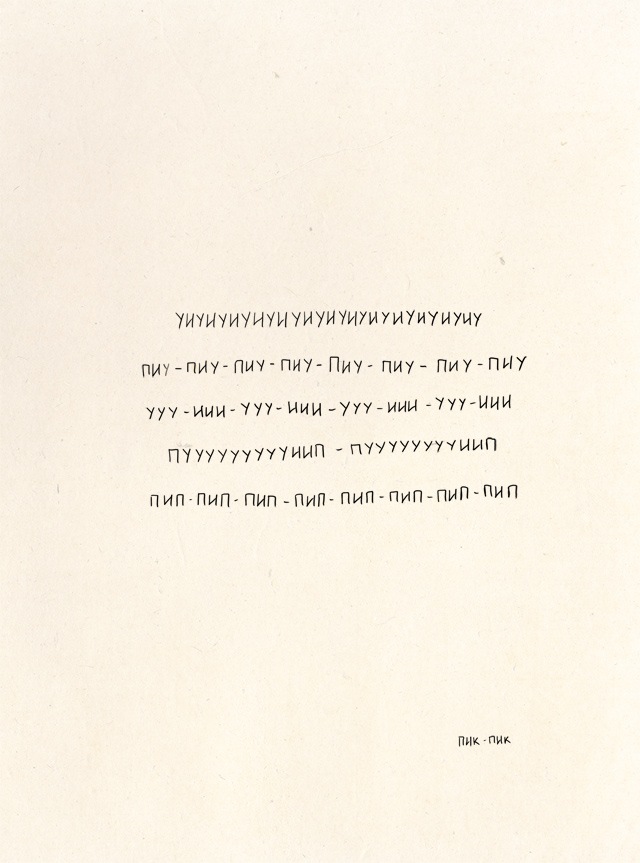 УИУИУИУИУИУИУИУИУИУИУИУИУИУ
ПИУ-ПИУ-ПИУ-ПИУ-ПИУ-ПИУ-ПИУ-ПИУ
УУУ-ИИИ-УУУ-ИИИ-УУУ-ИИИ-УУУ-ИИИ
ПУУУУУУУУУУИИП-ПУУУУУУУУУИИП
ПИП-ПИП-ПИП-ПИП-ПИП-ПИП-ПИП-ПИП
ПИК-ПИК